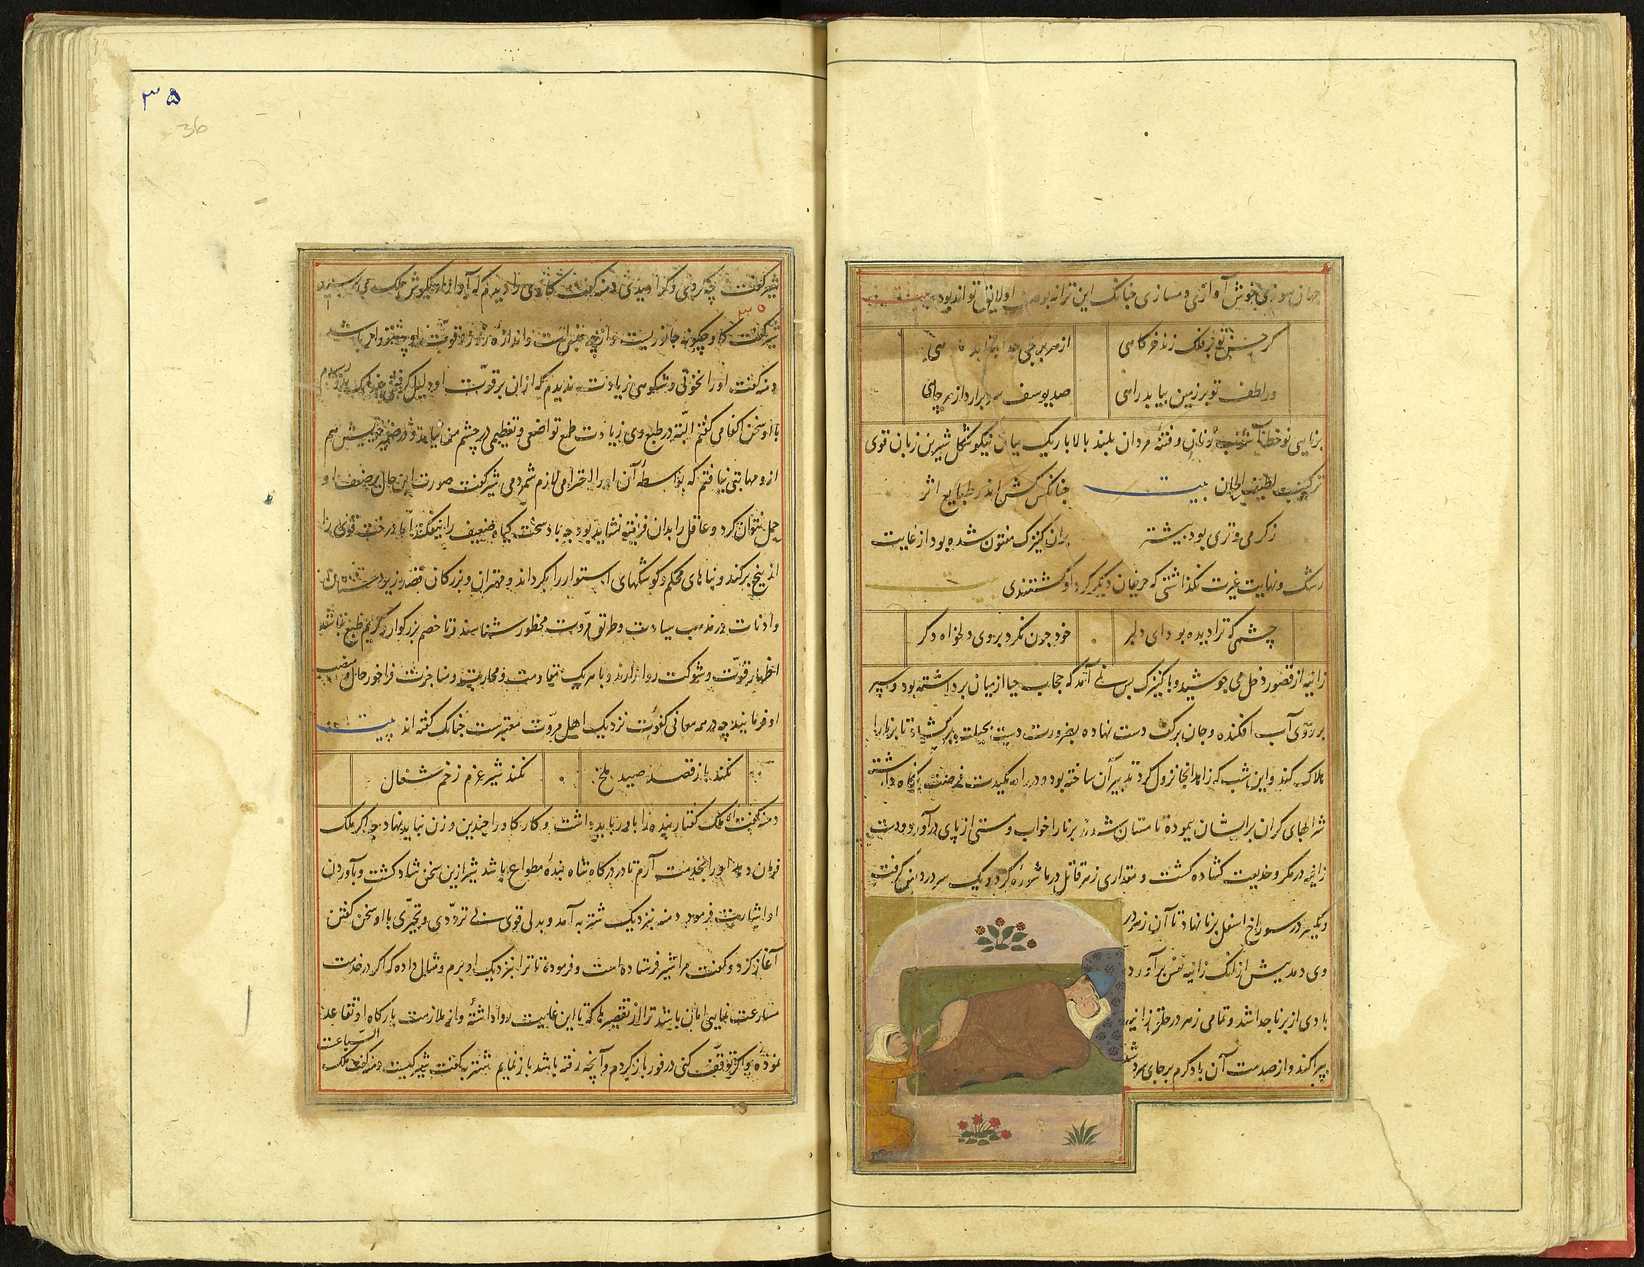 جهان سوزی جوش آوازی دمسازی چنانک این ترانه بوصف او لایق تواند بود
گر حسن تو بر فلک زند خرگاهی
از هر برجی جدا بتابد ماهی
ور لطف تو بر زمین بیابد راهی
صد یوسف سر برآرد از هر چاهی
برنایی نوخط آشوب زنان و فتنهٔ مردان بلند بالا باریک میان نیکو شکل شیرین زبان قوی
ترکیب لطیف الحان بیت چنانکس کش اندر طبایع اثر
ز گرمی و تری بود بیشتر بران کنیزک مفتون شده بود از غایت
رشک و نهایت غیرت نگذاشتی که حریفان دیگر گرد او گشتندی
چشمی که ترا دیده بود ای دلبر
خود چون نگرد بروی دلخواه دگر
زانیه از قصور دخل می جوشید و با کنیزک بس نمی آمد که حجاب حیا از میان برداشته بود و سپر
بر روی آب افکنده و جان بر کف دست نهاده بضرورت در حیلت تا برنا را
هلاک کند و این شب که زاهد آنجا نزول کرد تدبیر آن ساخته بود و فرصت نگاه داشته
شرابهای گران بر ایشان پیموده تا مستان شدند برنا را خواب و مستی از پای درآورد و دست
زانیه در مکر و خدیعت گشاده گشت و مقداری زهر قاتل در ماشوره کرد و یک سر در دهن گرفت
و دیگر در سوراخ اسفل برنا نهاد تا آن زهر در
وی دمد پیش از آنک زانیه نفس برآورد
بادی از برنا جدا شد و تمامی زهر در حلق زانیه
پراکند و از صدمت آن باد گرم بر جای سرد شد
۳۵
36
شیر گفت چه کردی دمنه گفت گاوی را دیدم که آواز او بگوش ملک می رسید
۳۵
شیر گفت گاو چگونه جانوریست و از چه جنس است و اندازهٔ زور و قوت او چیست
دمنه گفت او را نخوتی و شکوهی زیادت ندیدم که از آن بر قوت او دلیل گرفتی
با او سخن اکفا می گفتم البته در طبع وی زیادت طمع تواضعی و تعظیمی در چشم من نیامد و در ضمیر خویش هم
ازو مهابتی نیافتم که بواسطهٔ آن او را احترامی لازم شمردمی شیر گفت صورت این حال بر ضعف او
حمل نتوان کرد و عاقل را بدان فریفته نشاید بود چه باد سخت گیاه ضعیف را نیفکند اما درخت قوی را
از بیخ برکند و بناهای محکم و کوشکهای استوار را بگرداند و مهتران و بزرگان قصد زیردستان
در مذهب سیادت و طریق مروت محظور شناسند و تا خصم بزرگوار و کریم طبع نباشد
اظهار قوت و شوکت روا ندارند و با هر یک مقاومت و محاربت فراخور حال و منصب
او فرمایند چه در همه معانی کفویت نزدیک اهل مروت معتبرست چنانک گفته اند بیت
نکند باز قصد صید ملخ
نکند شیر عزم زخم شغال
دمنه گفت ملک گفتار بنده را باور باید داشت و کار گاو را چندین وزن نباید نهاد چه اگر ملک
فرمان دهد او را بخدمت آرم تا در درگاه شاه بندهٔ مطواع باشد شیر ازین سخن شاد گشت و بآوردن
او اشارت فرمود دمنه نزدیک شنزبه آمد و بدلی قوی بی ترددی و تحیری با او سخن گفتن
آغاز کرد و گفت مرا شیر فرستاده است و فرموده تا ترا بنزدیک او برم و مثال داده که اگر در خدمت
مسارعت نمایی امان باشد ترا از تقصیر ها که تا این غایت روا داشته و از ملازمت بارگاه او تقاعد
نموده و اگر توقف کنی در فور بازگردم و آنچه رفته باشد بازنمایم شنزبه گفت شیر کیست دمنه گفت ملک
السباع